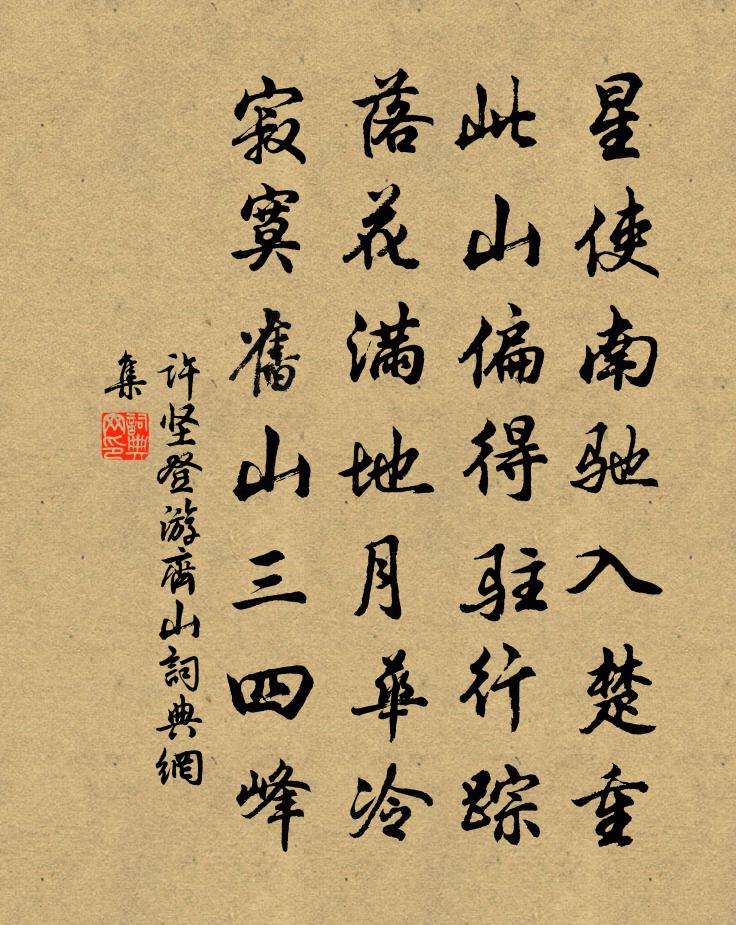 星使南驰入楚重
此山偏得驻行踪
落花满地月华冷
寂寞旧山三四峰
许坚登游齊山詞典網
集
詞典網印